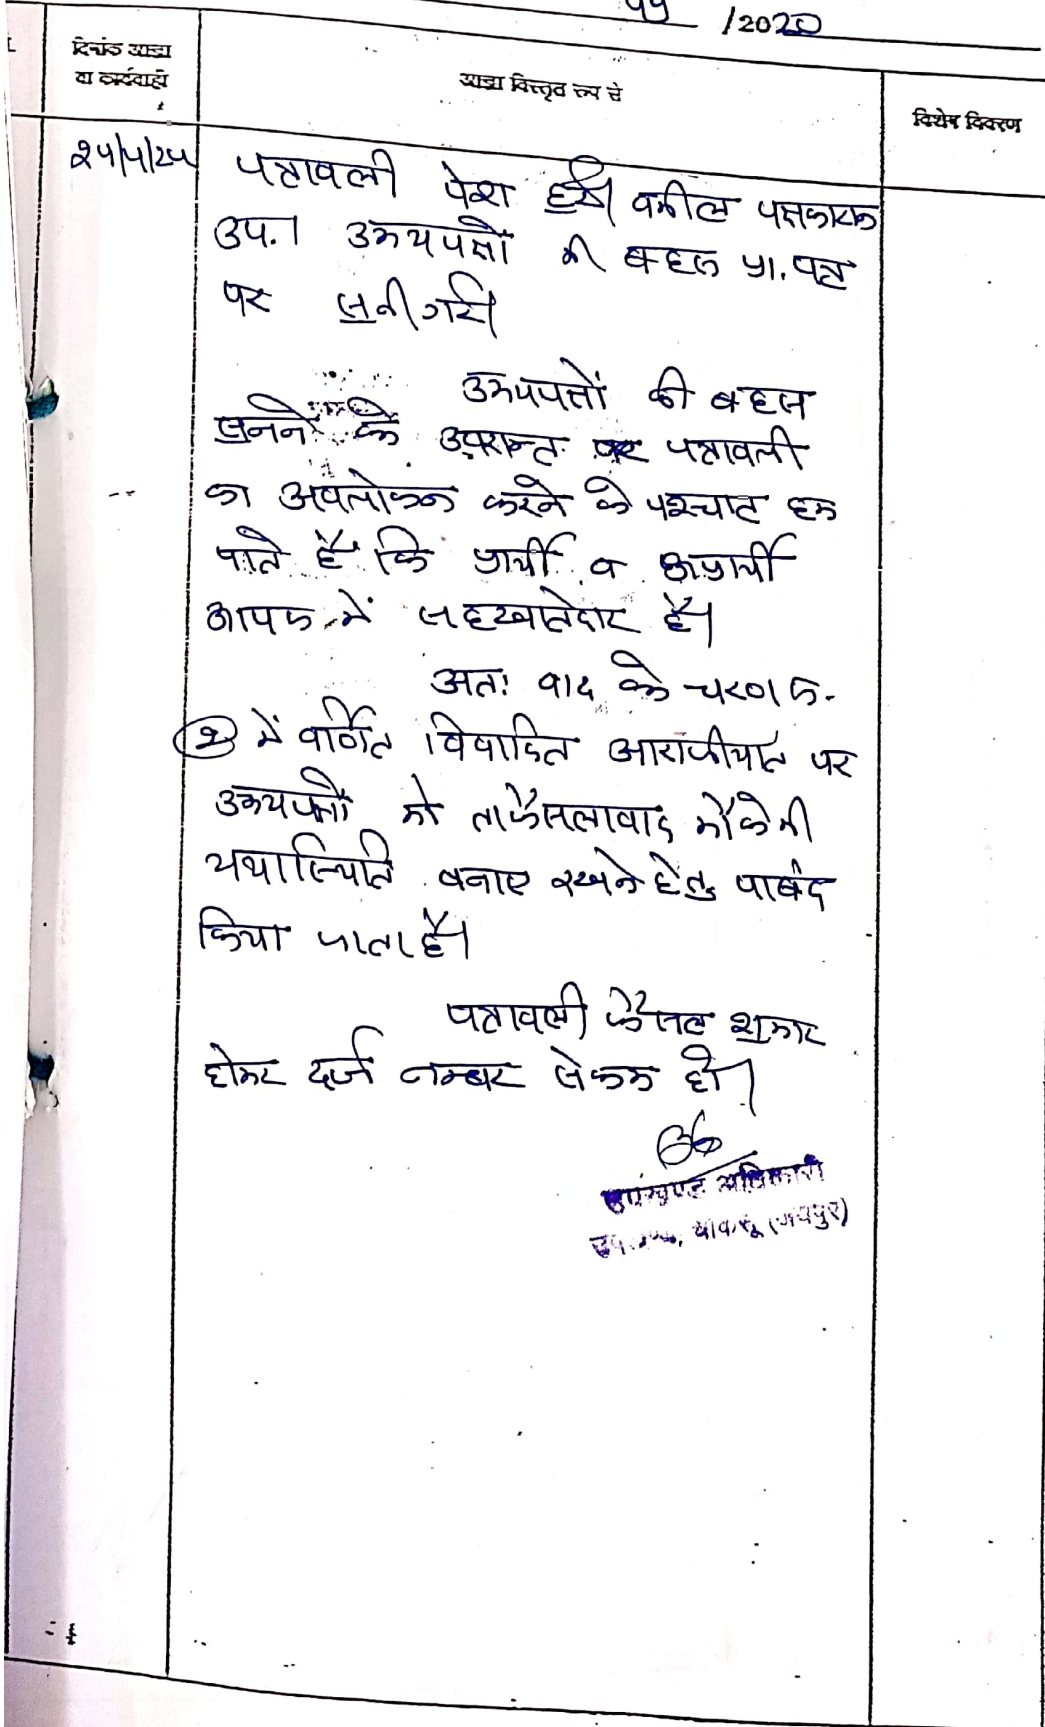 /2020
दिनांक आज्ञा
या कार्यवाही
आज्ञा विस्तृत रूप से
विशेष विवरण
पत्रावली पेश हुई। वकील पक्षकारान
उप.। उभयपक्षों की बहस प्रा. पत्र
पर सुनी गई।
उभयपक्षों की बहस
सुनने के उपरान्त पत्रावली
का अवलोकन करने के पश्चात हम
पाते हैं कि प्रार्थी व अप्रार्थी
आपस में सहखातेदार हैं।
अतः वाद के चरण स.
2 में वर्णित विवादित आराजीयात पर
उभयपक्षों को ताफैसलावाद मौके की
यथास्थिति बनाए रखने हेतु पाबंद
किया जाता है।
पत्रावली फैसल शुमार
होकर दर्ज नम्बर से कम हो।
उपखण्ड अधिकारी
चाकसू (जयपुर)